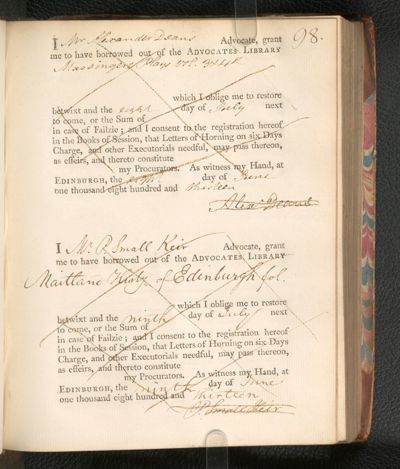 98.
I Mr Alexander Deans Advocate, grant
me to have borrowed out of the ADVOCATES LIBRARY
Massingers Plays Vol. 3d 4
which I oblige me to restore
betwixt and the eight day of July next
to come, or the Sum of
in case of Failzie; and I consent to the registration hereof
in the Books of Session, that Letters of Horning on six Days
Charge, and other Executorials needful, may pass thereon,
as effeirs, and thereto constitute
my Procurators. As witness my Hand, at
EDINBURGH, the eight day of June
one thousand eight hundred and thirteen
Alexr Deans
I Mr P. Small Keir Advocate, grant
me to have borrowed out of the ADVOCATES LIBRARY
Maitland Histy of Edenburgh fol.
which I oblige me to restore
betwixt and the ninth day of July next
to come, or the Sum of
in case of Failzie; and I consent to the registration hereof
in the Books of Session, that Letters of Horning on six Days
Charge, and other Executorials needful, may pass thereon,
as effeirs, and thereto constitute
my Procurators. As witness my Hand, at
EDINBURGH, the ninth day of June
one thousand eight hundred and thirteen
P Small Keir